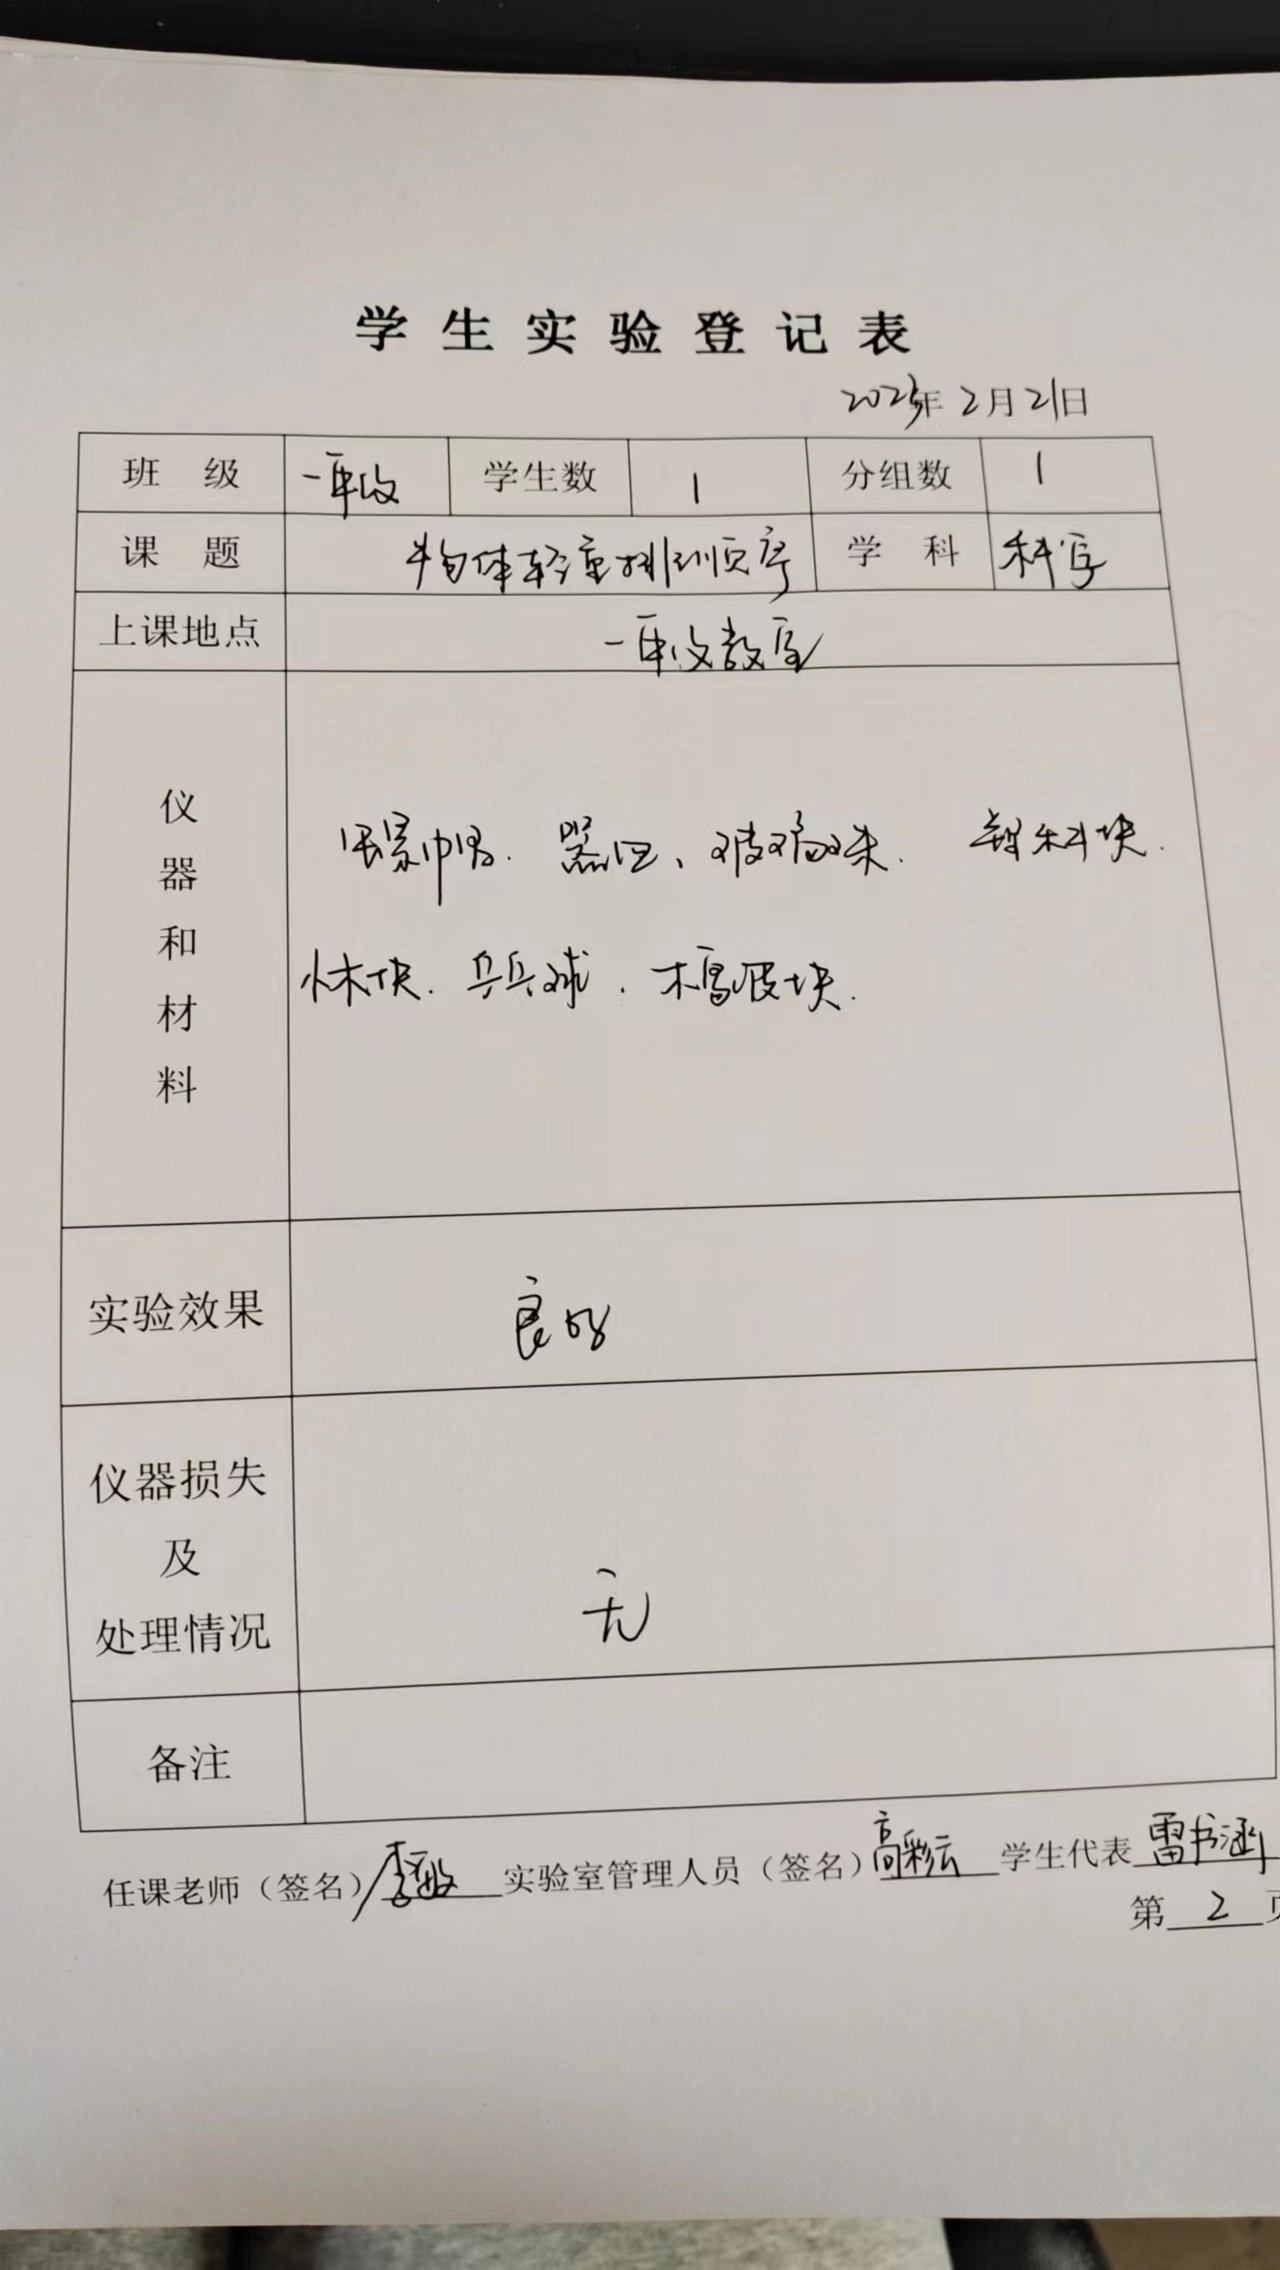 学生实验登记表
2023年2月21日
班 级 一年级 学生数 1 分组数 1
课 题 物体轻重排列顺序 学 科 科学
上课地点 一年级教室
仪器和材料
器皿、玻璃球. 塑料块.
小木块. 乒乓球. 橡皮块.
实验效果 良好
仪器损失
及
处理情况 无
备注
任课老师（签名）李敏 实验室管理人员（签名）高彩云 学生代表 雷书涵
第 2 页